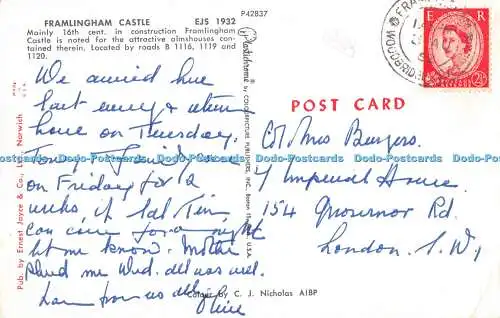 FRAMLINGHAM CASTLE EJS 1932
Mainly 16th cent. in construction Framlingham
Castle is noted for the attractive almshouses con-
tained therein. Located by roads B 1116, 1119 and
1120.
P42837
We arrived here
last evening & return
home on Tuesday.
on Friday for 2
weeks, if
can come for a night
let me know. Mother
me Wed. all was well.
Love from us all
Olive
Colour by C. J. Nicholas AIBP
Pub. by Ernest Joyce & Co., Norwich
Plastichrome ® by COLOURPICTURE PUBLISHERS, INC. Boston U.S.A.
POST CARD
Col. Mrs Burgess.
7 Imperial House.
154 Grosvenor Rd.
London. S.W.1
E R
2½
WOODBRIDGE
Dodo-Postcards